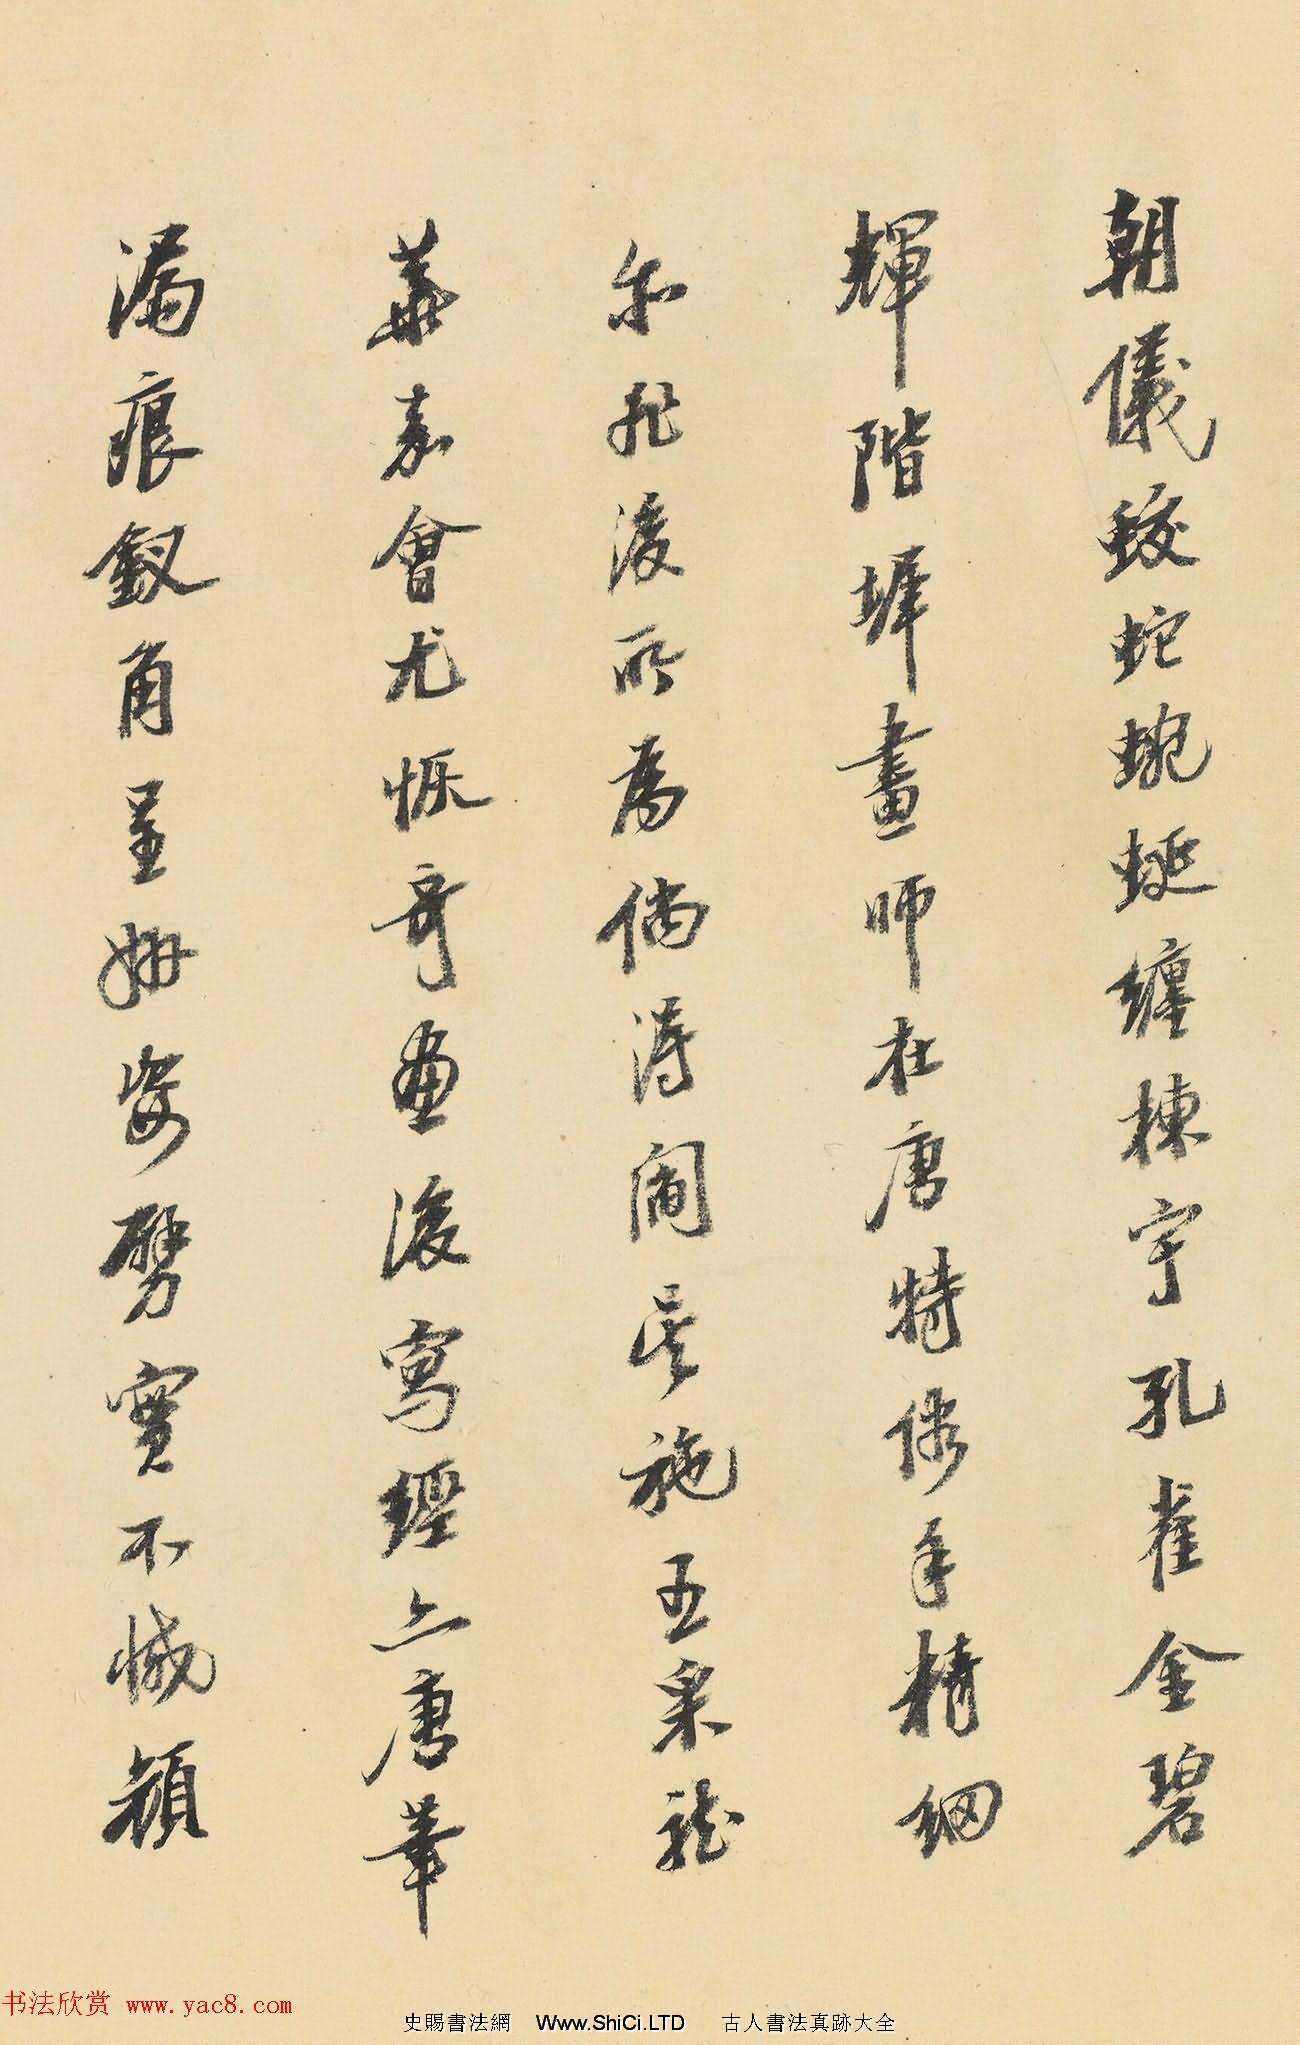 朝儀蛟蛇蜿蜒纏棟宇孔雀金碧
輝階墀畫師在唐特侈手精細
尔非後所為倘得閻吳施五采龍
葉嘉會尤慨奇畫後寫經亦唐筆
漏痕釵角呈妍姿劈實不慽顏
书法欣赏 www.yac8.com
史賜書法網 Www.ShiCi.LTD 古人書法真跡大全